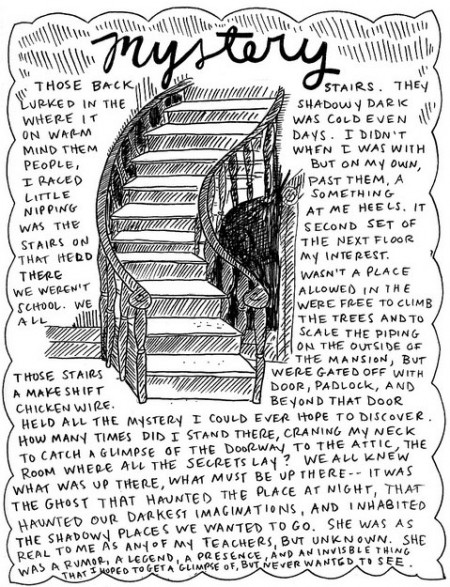 mystery
THOSE BACK STAIRS. THEY
LURKED IN THE SHADOWY DARK
WHERE IT WAS COLD EVEN
ON WARM DAYS. I DIDN'T
MIND THEM WHEN I WAS WITH
PEOPLE, BUT ON MY OWN,
I RACED PAST THEM, A
LITTLE SOMETHING
NIPPING AT ME HEELS. IT
WAS THE SECOND SET OF
STAIRS ON THE NEXT FLOOR
THAT HELD MY INTEREST.
THERE WASN'T A PLACE
WE WEREN'T ALLOWED IN THE
SCHOOL. WE WERE FREE TO CLIMB
ALL THE TREES AND TO
SCALE THE PIPING
ON THE OUTSIDE OF
THE MANSION, BUT
THOSE STAIRS WERE GATED OFF WITH
A MAKESHIFT DOOR, PADLOCK, AND
CHICKEN WIRE. BEYOND THAT DOOR
HELD ALL THE MYSTERY I COULD EVER HOPE TO DISCOVER.
HOW MANY TIMES DID I STAND THERE, CRANING MY NECK
TO CATCH A GLIMPSE OF THE DOORWAY TO THE ATTIC, THE
ROOM WHERE ALL THE SECRETS LAY? WE ALL KNEW
WHAT WAS UP THERE, WHAT MUST BE UP THERE-- IT WAS
THE GHOST THAT HAUNTED THE PLACE AT NIGHT, THAT
HAUNTED OUR DARKEST IMAGINATIONS, AND INHABITED
THE SHADOWY PLACES WE WANTED TO GO. SHE WAS AS
REAL TO ME AS ANY OF MY TEACHERS, BUT UNKNOWN. SHE
WAS A RUMOR, A LEGEND, A PRESENCE, AND AN INVISBLE THING
THAT I HOPED TO GET A GLIMPSE OF, BUT NEVER WANTED TO SEE.